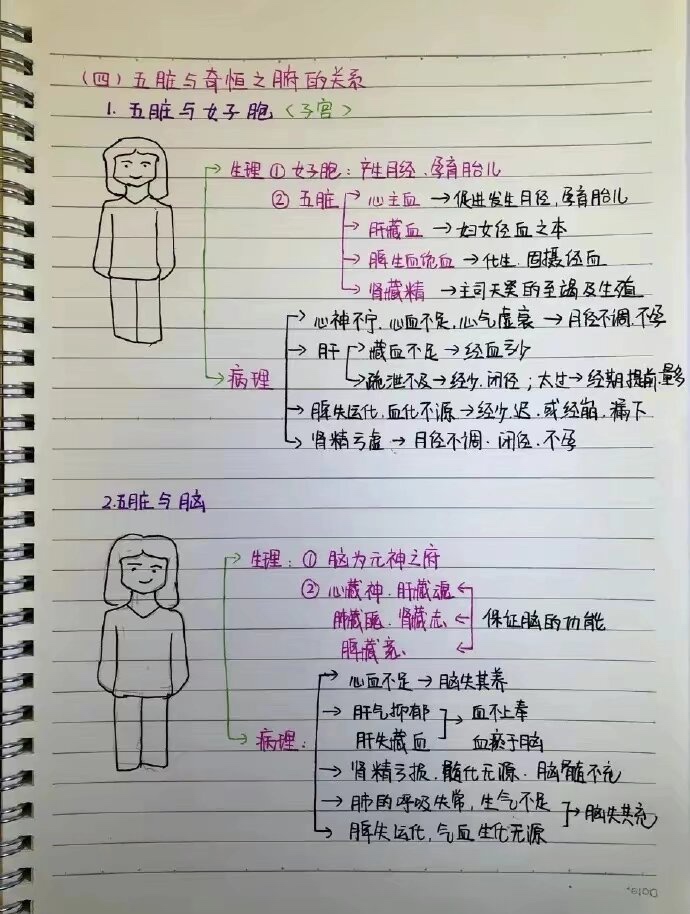 (四)五脏与奇恒之腑的关系
1. 五脏与女子胞(子宫)
生理 ① 女子胞:产生月经.孕育胎儿
② 五脏 心主血 → 促进发生月经,孕育胎儿
肝藏血 → 妇女经血之本
脾生血统血 → 化生.固摄经血
肾藏精 → 主司天癸的至竭及生殖
病理
心神不宁.心血不足,心气虚衰 → 月经不调.不孕
肝 藏血不足 → 经血亏少
疏泄不及 → 经少.闭经;太过 → 经期提前.量多
脾失运化,血化不源 → 经少.迟.或经崩.漏下
肾精亏虚 → 月经不调.闭经.不孕
2.五脏与脑
生理:① 脑为元神之府
② 心藏神.肝藏魂
肺藏魄.肾藏志.
脾藏意.
保证脑的功能
病理:
心血不足 → 脑失其养
肝气抑郁 → 血不上奉
肝失藏血 血瘀于脑
肾精亏损.髓化无源.脑髓不充
肺的呼吸失常,生气不足
脾失运化,气血生化无源
→ 脑失其充